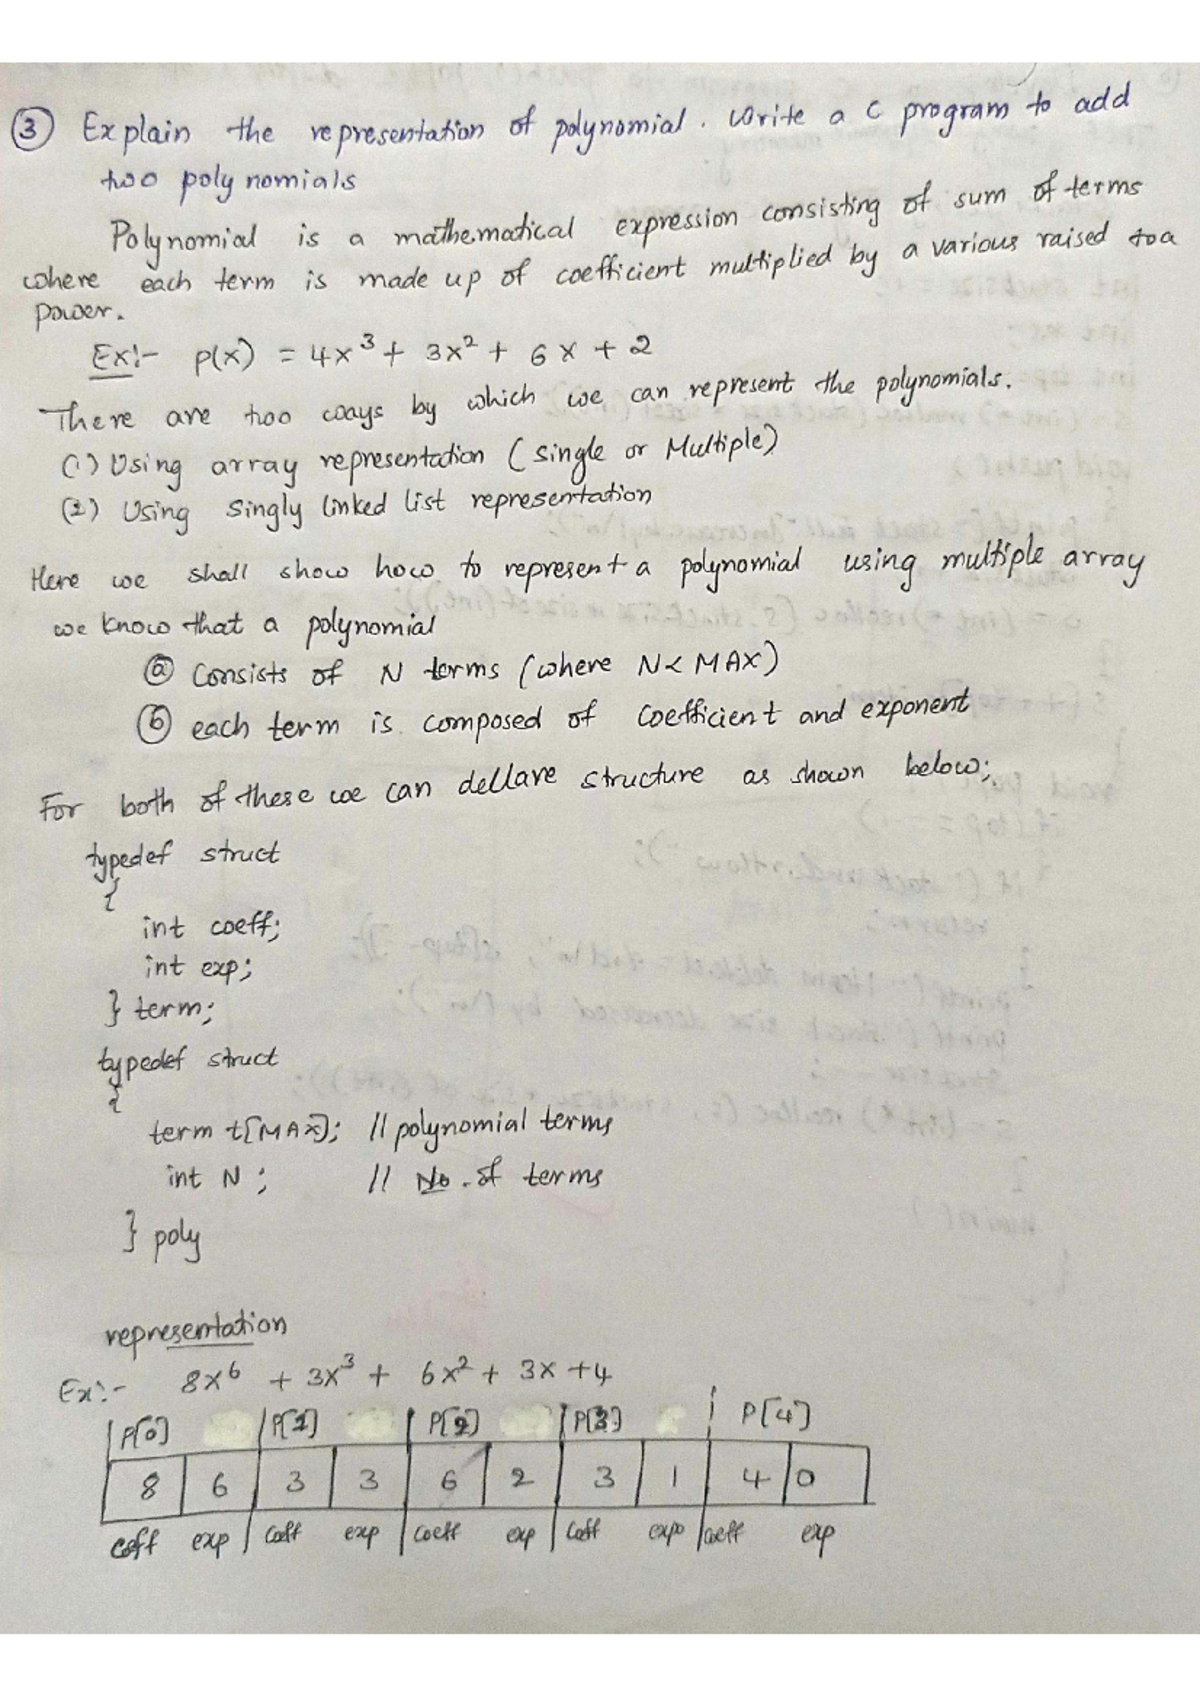 ③ Explain the representation of polynomial. Write a C program to add
two polynomials
Polynomial is a mathematical expression consisting of sum of terms
where each term is made up of coefficient multiplied by a various raised to a
power.
Ex:- P(x) = 4x³ + 3x² + 6x + 2
There are two ways by which we can represent the polynomials.
(1) Using array representation (single or Multiple)
(2) Using Singly linked list representation
Here we shall show how to represent a polynomial using multiple array
we know that a polynomial
ⓐ Consists of N terms (where N < MAX)
ⓑ each term is composed of Coefficient and exponent
For both of these we can dellare structure as shown below;
typedef struct
{
int coeff;
int exp;
} term;
typedef struct
{
term t[MAX]; // polynomial terms
int N ; // No. of terms
} poly
representation
Ex:- 8x⁶ + 3x³ + 6x² + 3x + 4
P[0] P[1] P[2] P[3] P[4]
8 6 3 3 6 2 3 1 4 0
coff exp coff exp coeff exp coff expo coeff exp